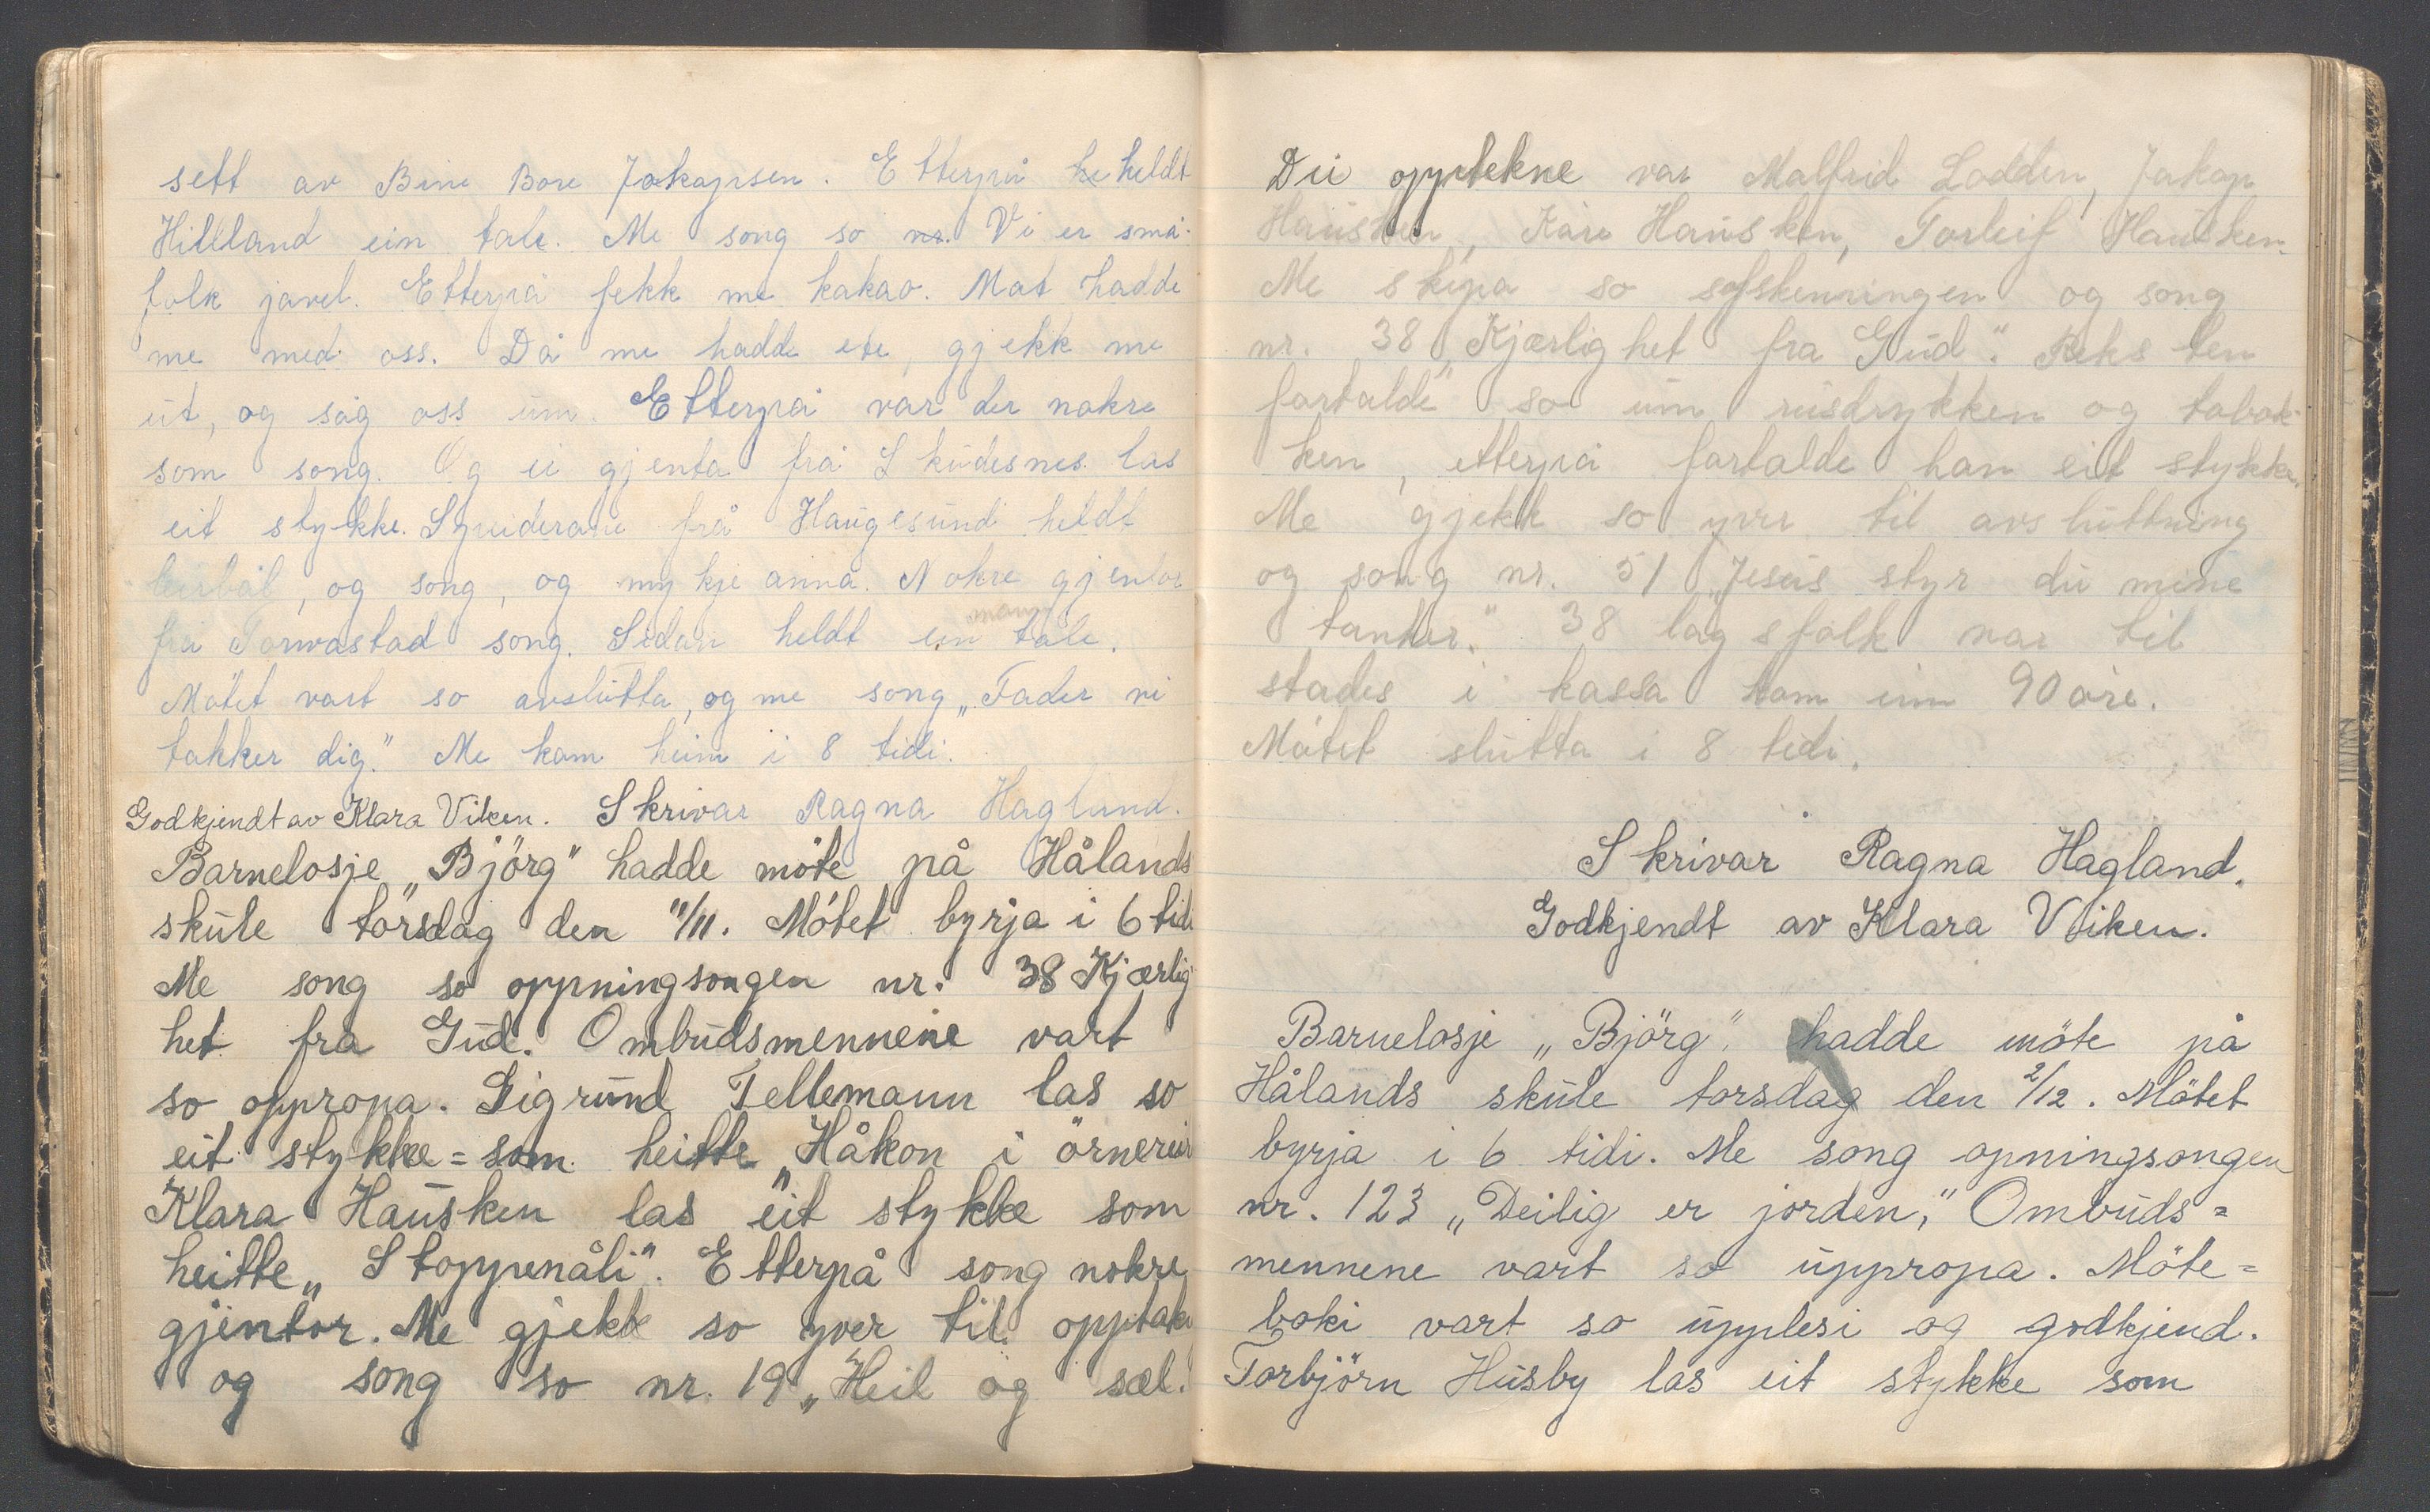 sett av Bine Bore Jakapsen. Etterpå heheldt
Hilleland ein tale. Me song so nr. Vi er små-
folk javel. Etterpå fekk me kakao. Mat hadde
me med oss. Då me hadde ete, gjekk me
ut, og såg oss um. Etterpå var der nokre
som song. Og ei gjenta frå Skudesnes las
eit stykke. Speiderane frå Haugesund heldt
leirbål, og song, og mykje anna. Nokre gjentor
frå Torvastad song. Sidan heldt ein mann tale.
Møtet vart so avslutta, og me song „Fader vi
takker dig." Me kom heim i 8 tidi.
Godkjendt av Klara Viken. Skrivar Ragna Hagland.
Barnelosje „Björg" hadde möte på Hålands
skule torsdag den 11/11. Mötet byrja i 6 tidi
Me song so oppningsongen nr. 38 Kjærlig
het fra Gud. Ombudsmennene vart
so oppropa. Sigrund Tellemann las so
eit stykke = som heitte „Håkon i örnereir
Klara Hausken las eit stykke som
heitte „Stoppenåli". Etterpå song nokre
gjentor. Me gjekk so yver til opptak
og song so nr. 19 „Heil og sæl."
Dei opptekne var Malfrid Lodden, Jakop
Hausken, Kåre Hausken, Torleif Hausken.
Me skipa so sysken­ringen og song
nr. 38 „Kjærlighet fra Gud". Reksten
fortalde so um rusdrykken og tobak-
ken, etterpå fortalde han eit stykke.
Me gjekk so yver til avsluttning
og song nr. 51 „Jesus styr du mine
tankar." 38 lagsfolk var til
stades i kassa kom inn 90 öre.
Mötet slutta i 8 tidi.
Skrivar Ragna Hagland.
Godkjendt av Klara Viken.
Barnelosje „Björg" hadde möte på
Hålands skule torsdag den 2/12. Mötet
byrja i 6 tidi. Me song opningsongen
nr. 123 „Deilig er jorden," Ombuds=
mennene vart so uppropa. Möte=
boki vart so upplesi og godkjend.
Torbjörn Husby las eit stykke som